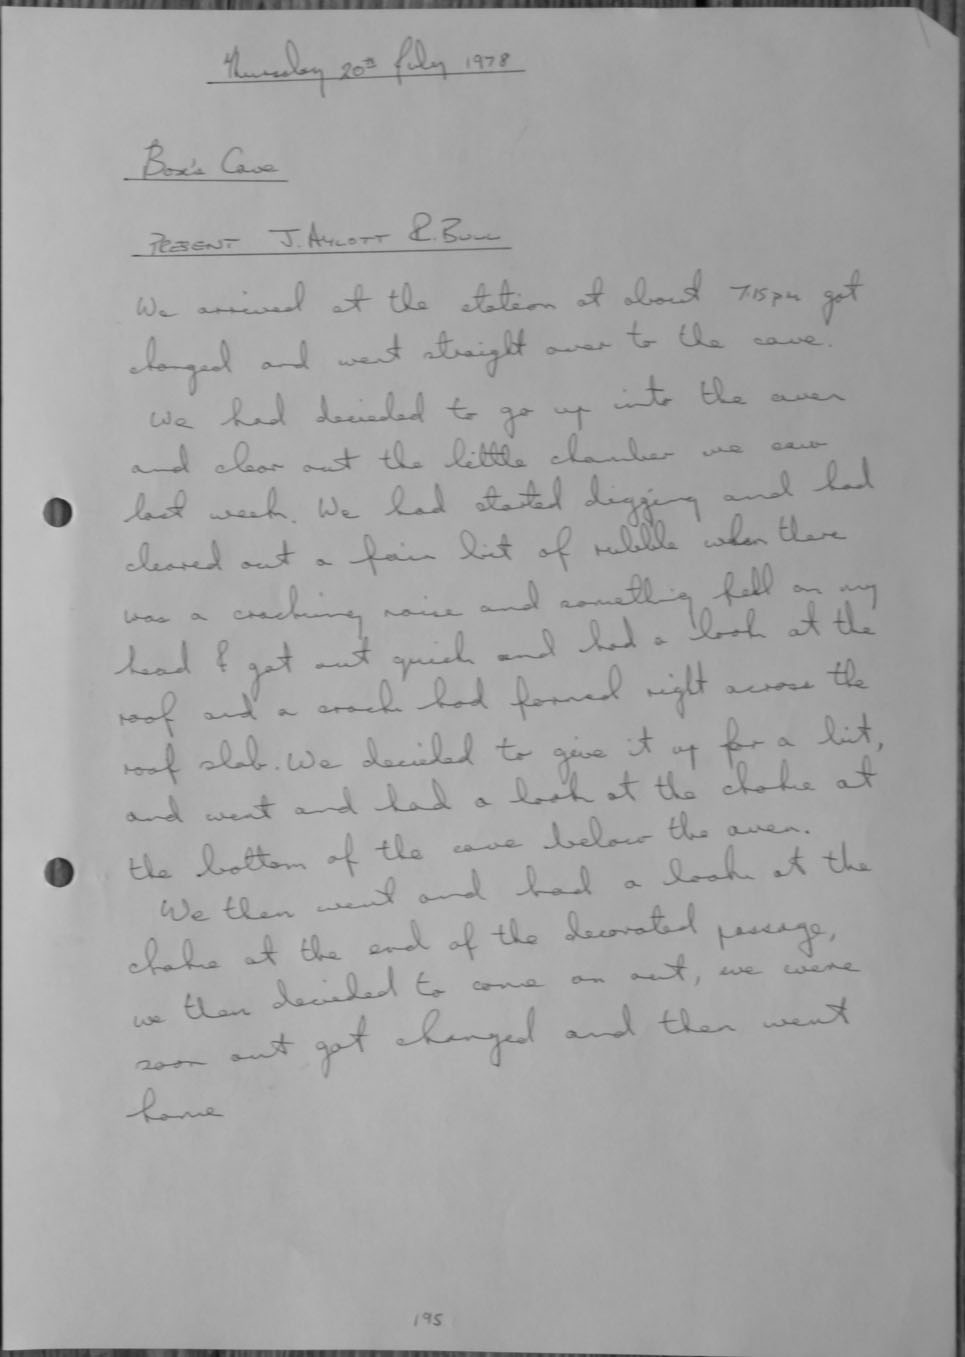 Thursday 20th July 1978
Box's Cave
PRESENT J. AYLOTT R. BULL
We arrived at the station at about 7.15pm got
changed and went straight over to the cave.
We had decieded to go up into the aven
and clear out the little chamber we saw
last week. We had started digging and had
cleared out a fair bit of rubble when there
was a cracking noise and something fell on my
head I got out quick and had a look at the
roof and a crack had formed right across the
roof slab. We decided to give it up for a bit,
and went and had a look at the choke at
the bottom of the cave below the aven.
We then went and had a look at the
choke at the end of the decorated passage,
we then decieded to come on out, we were
soon out got changed and then went
home
195